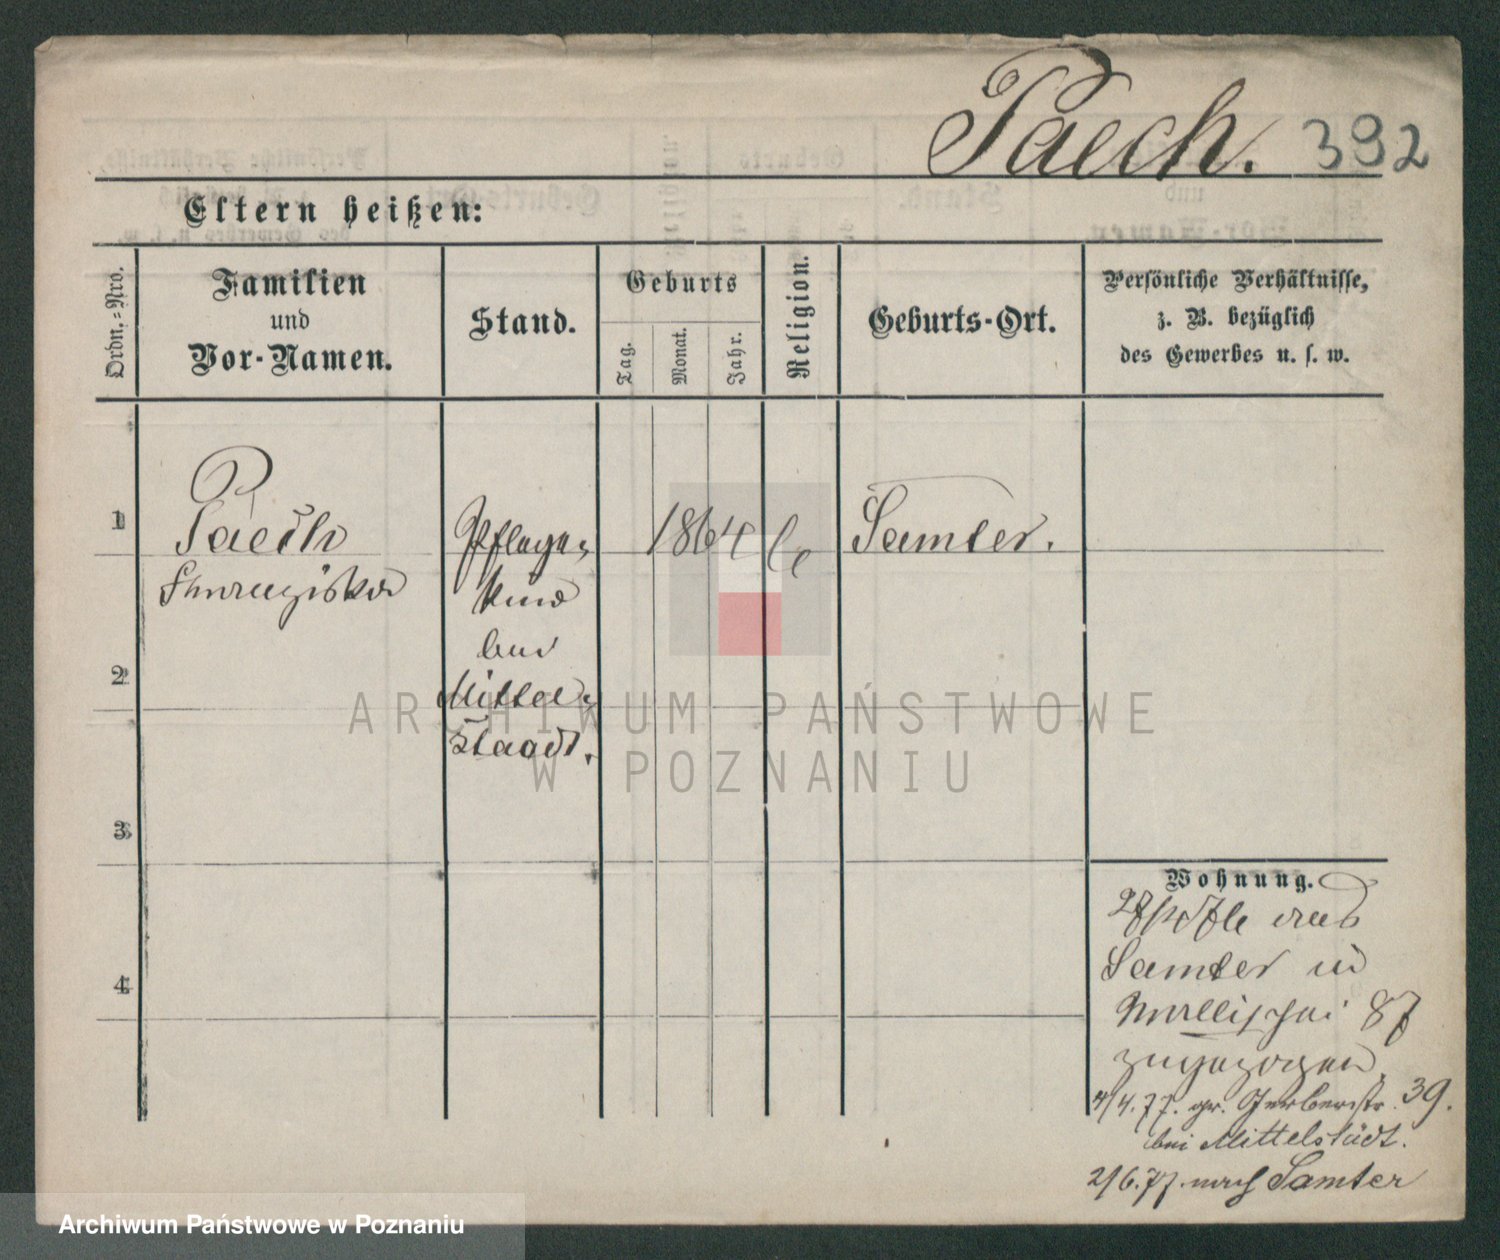 Paech. 392
Eltern heißen:
Ordn.-Nro.
Familien
und
Vor-Namen.
Stand.
Geburts
Tag.
Monat.
Jahr.
Religion.
Geburts-Ort.
Persönliche Verhältnisse,
z. B. bezüglich
des Gewerbes u. s. w.
1
Paech
Franziska
Pflege-
kind
bei
Mittel-
staedt.
1864
k
Samter.
2
3
4
Wohnung.
aus
Samter in
Wallischei 87
zugezogen.
4/4.77. gr. Gerberstr. 39.
bei Mittelstädt.
2/6.77. nach Samter
ARCHIWUM PAŃSTWOWE
W POZNANIU
Archiwum Państwowe w Poznaniu